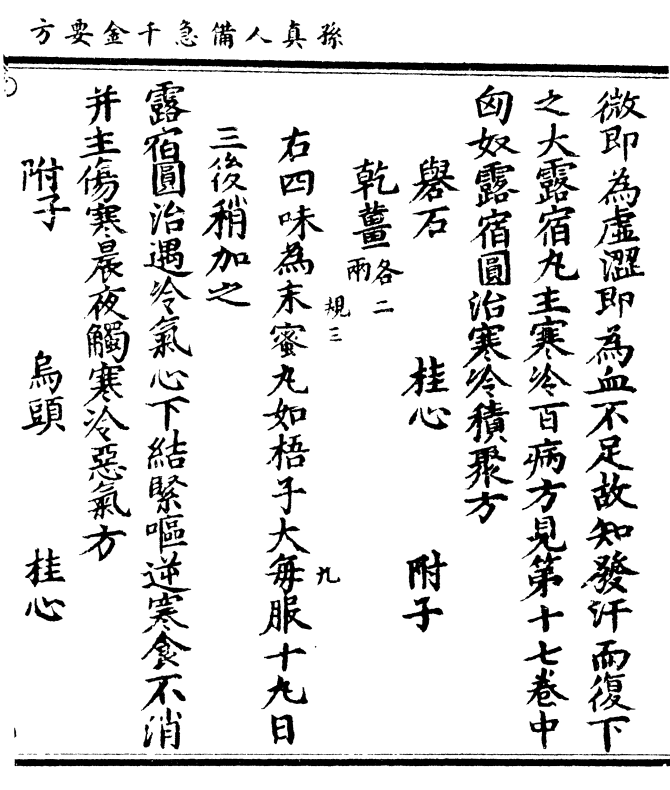 孫真人備急千金要方
微即為虛澀即為血不足故知發汗而復下
之大露宿丸主寒冷百病方見第十七卷中
匈奴露宿圓治寒冷積聚方
礜石
桂心
附子
乾薑各二
兩
右四味為末蜜丸如梧子大每服十丸日
規三
九
三後稍加之
露宿圓治遇冷氣心下結緊嘔逆寒食不消
并主傷寒晨夜觸寒冷惡氣方
附子
烏頭
桂心